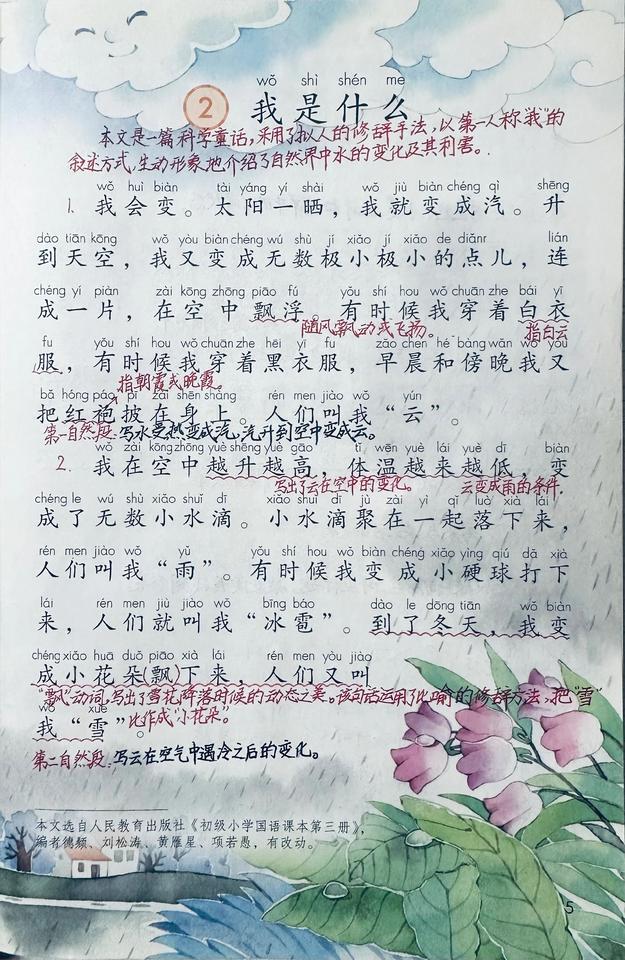 wǒ shì shén me
2 我是什么
本文是一篇科学童话，采用了拟人的修辞手法，以第一人称“我”的
叙述方式，生动形象地介绍了自然界中水的变化及其利害。
wǒ huì biàn tài yáng yí shài wǒ jiù biàn chéng qì shēng
1. 我会变。太阳一晒，我就变成汽。升
dào tiān kōng wǒ yòu biàn chéng wú shù jí xiǎo jí xiǎo de diǎnr lián
到天空，我又变成无数极小极小的点儿，连
chéng yí piàn zài kōng zhōng piāo fú yǒu shí hou wǒ chuān zhe bái yī
成一片，在空中飘浮。有时候我穿着白衣
随风飘动或飞扬。 指白云
fu yǒu shí hou wǒ chuān zhe hēi yī fu zǎo chen hé bàng wǎn wǒ yòu
服，有时候我穿着黑衣服，早晨和傍晚我又
指朝霞或晚霞。
bǎ hóng páo pī zài shēn shang rén men jiào wǒ yún
把红袍披在身上。人们叫我“云”。
第一自然段：写水受热变成汽，汽升到空中变成云。
wǒ zài kōng zhōng yuè shēng yuè gāo tǐ wēn yuè lái yuè dī biàn
2. 我在空中越升越高，体温越来越低，变
写出了云在空中的变化。 云变成雨的条件.
chéng le wú shù xiǎo shuǐ dī xiǎo shuǐ dī jù zài yì qǐ luò xià lái
成了无数小水滴。小水滴聚在一起落下来，
rén men jiào wǒ yǔ yǒu shí hou wǒ biàn chéng xiǎo yìng qiú dǎ xià
人们叫我“雨”。有时候我变成小硬球打下
lái rén men jiù jiào wǒ bīng báo dào le dōng tiān wǒ biàn
来，人们就叫我“冰雹”。到了冬天，我变
chéng xiǎo huā duǒ piāo xià lái rén men yòu jiào
成小花朵(飘)下来，人们又叫
“飘”动词，写出了雪花降落时候的动态之美。该句话运用了比喻的修辞方法，把“雪”
wǒ xuě
我“雪”。
比作成“小花朵”。
第二自然段：写云在空气中遇冷之后的变化。
本文选自人民教育出版社《初级小学国语课本第三册》，
编者德颖、刘松涛、黄雁星、项若愚，有改动。
5